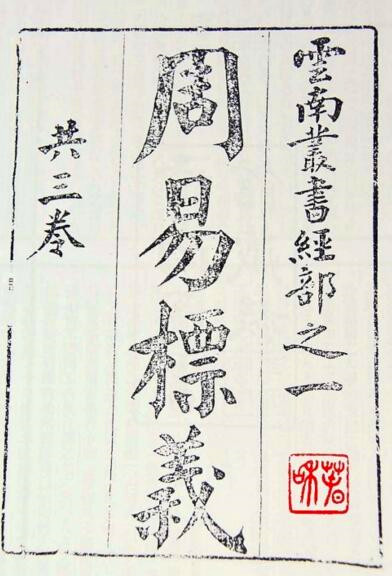 雲南叢書經部之一
周易標義
共三卷